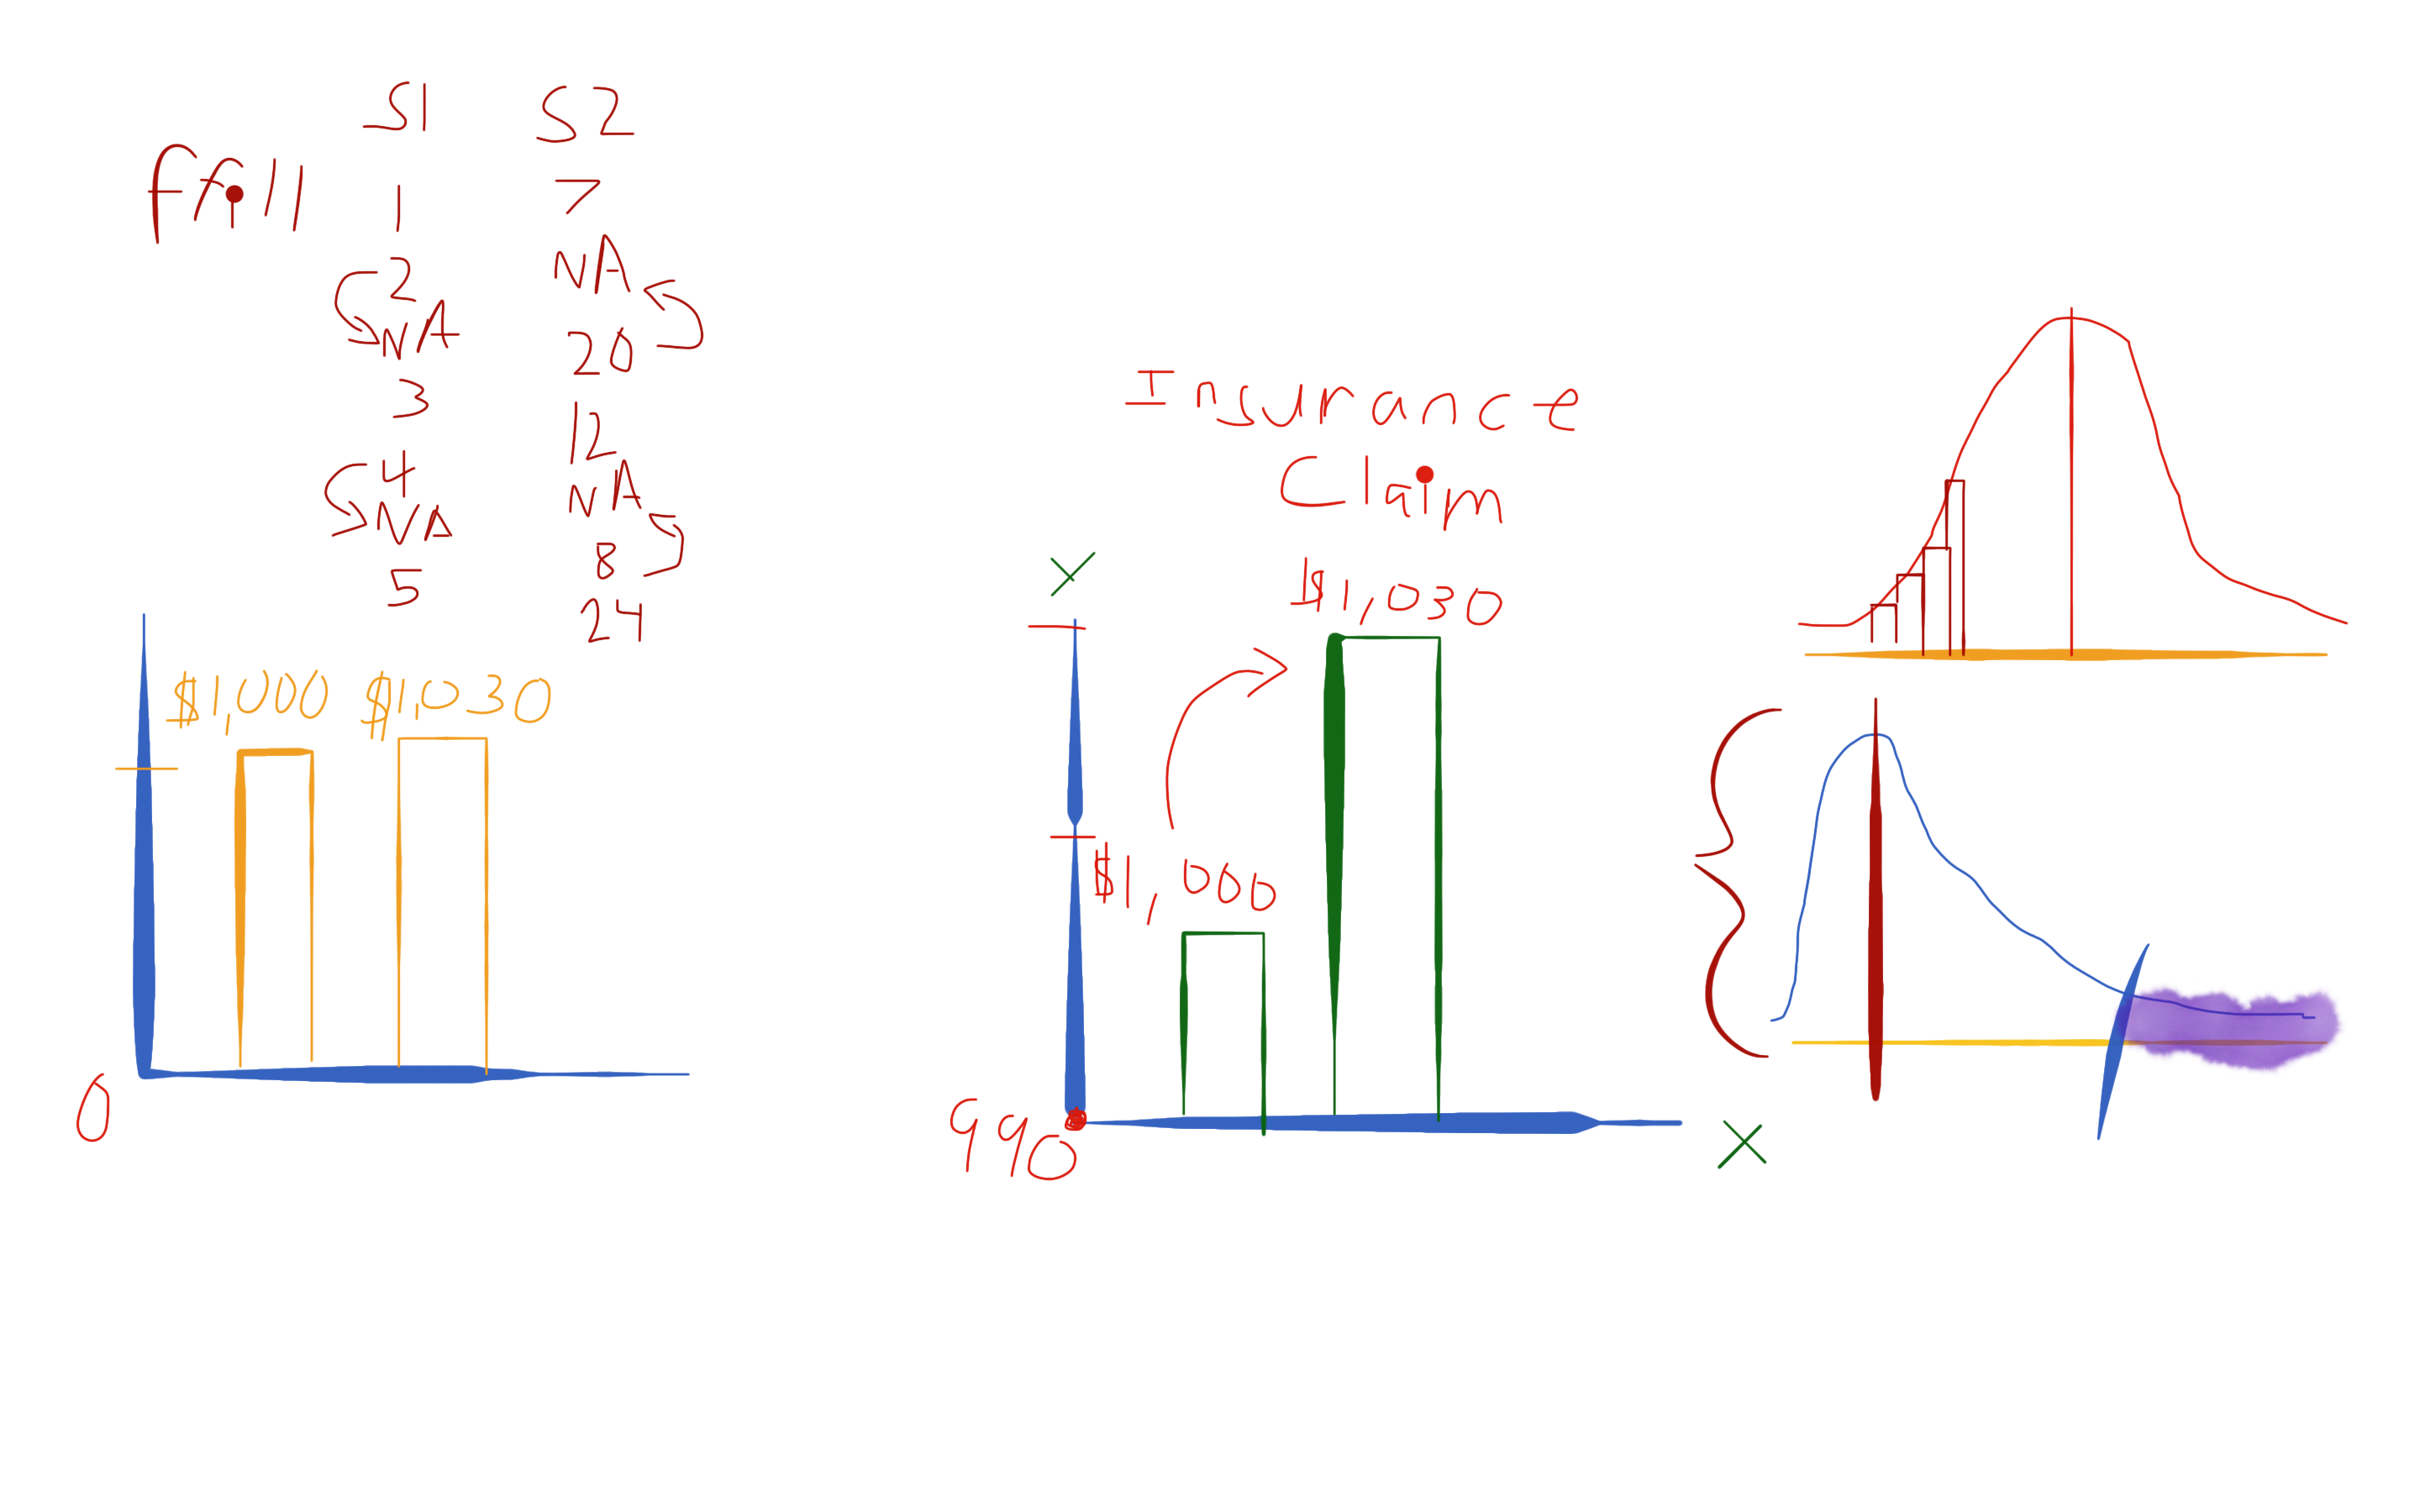 S1 S2
ffill
1 7
2 NA
NA 20
3 12
4 NA
NA 8
5 24
$1,000 $1,030
0
Insurance
Claim
$1,030
$1,000
990